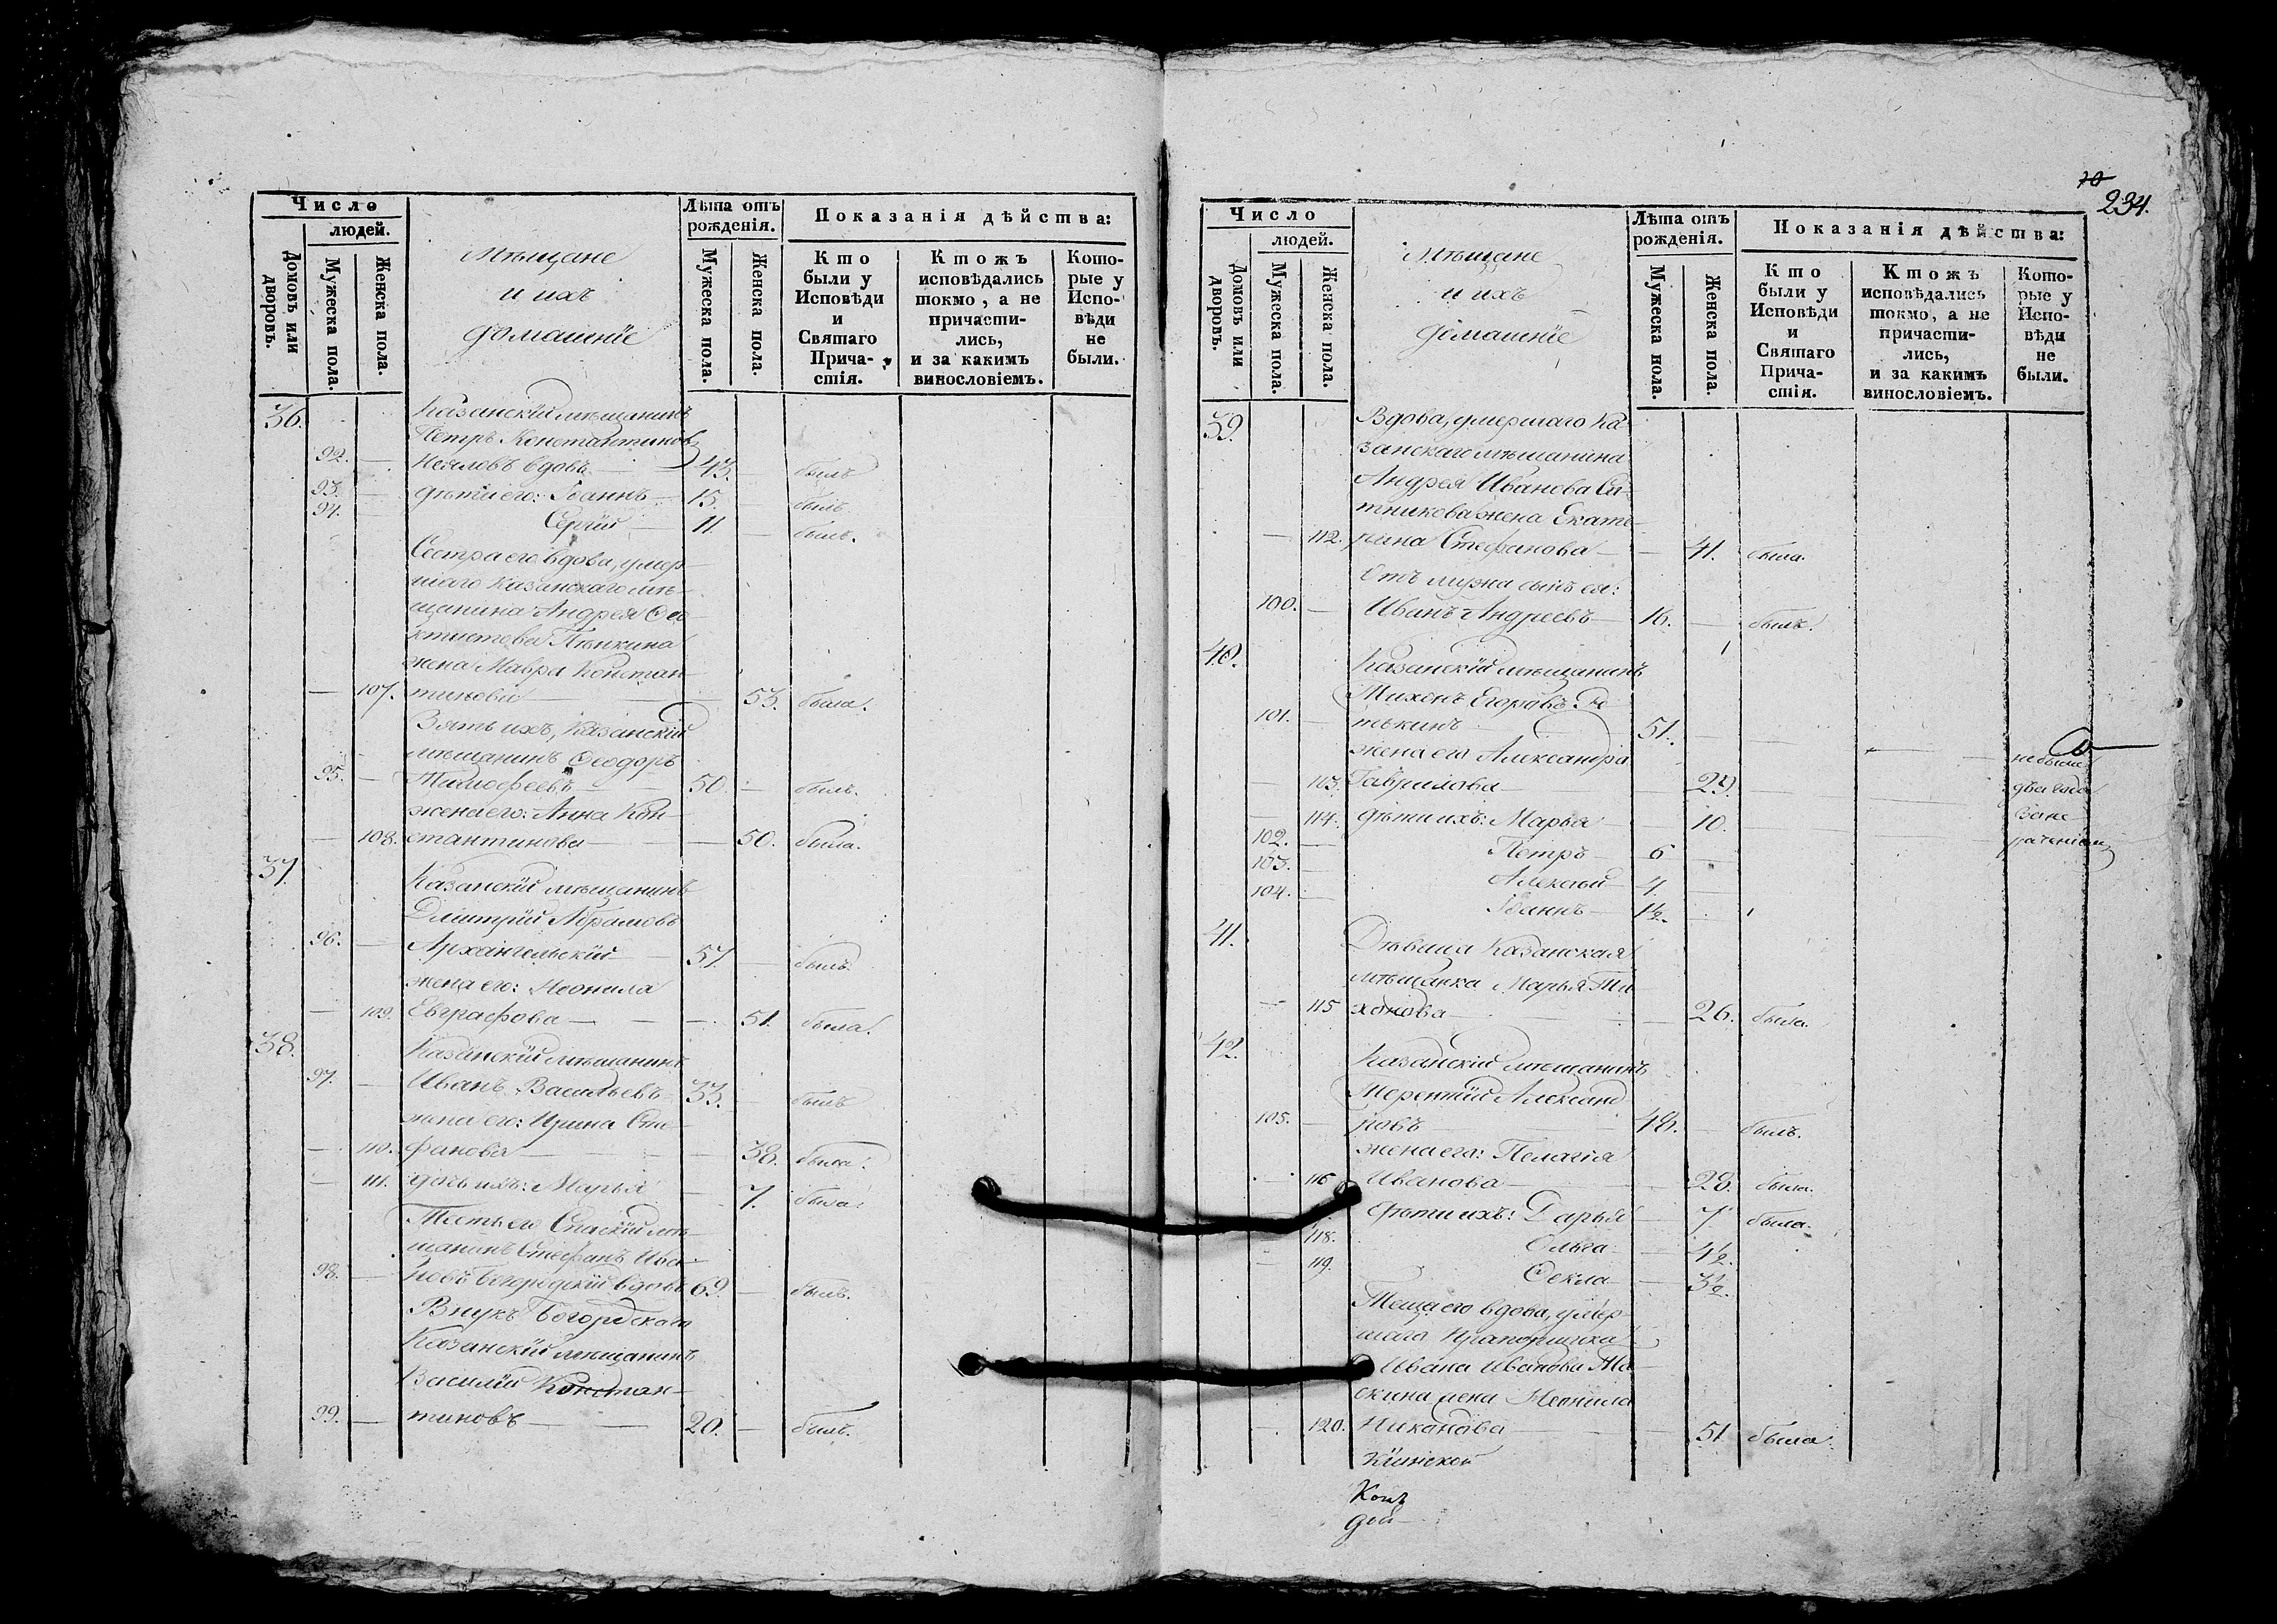 Число
людей.
Домовъ или дворовъ.
Мужеска пола.
Женска пола.
Мѣщане
и ихъ
домашніе
Лѣта отъ
рожденія.
Мужеска пола.
Женска пола.
Показанія дѣйства:
Кто
были у
Исповѣди
и
Святаго
Прича-
стія.
Ктожъ
исповѣдались
токмо, а не
причасти-
лись,
и за какимъ
винословіемъ.
Кото-
рые у
Испо-
вѣди
не
были.
36. Казанскій мѣщанинъ
Петръ Константиновъ
92. — вдовъ — 43. былъ
93. — дѣти его: Іоаннъ — 15. — былъ
94. — Сергій — 11. — былъ.
Сестра его вдова, умер-
шаго Казанскаго мѣ-
щанина Андрея Ѳео-
ктистова Пѣнкина
жена Мавра Констан-
— 107. тинова — — 53. была.
Зять ихъ, Казанскій
мѣщанинъ Ѳеодоръ
95. — Тимофеевъ — 50. — былъ.
жена его: Анна Кон-
— 108. стантинова — — 50. была.
37. Казанскій мѣщанинъ
Дмитрій Абрамовъ
96. — Архангельскій — 57. — былъ.
жена его: Неонила
— 109. Евграфова — — 51. была.
38. Казанскій мѣщанинъ
97. — Иванъ Васильевъ 33. — былъ
жена его: Ирина Сте-
— 110. фанова — — 38. была.
— 111. дочь ихъ: Марья — 7. была.
Тесть его Спаскій мѣ-
щанинъ Стефанъ Ива-
98. — новъ Богородскій вдовъ 69. — былъ.
Внукъ Богородскаго
Казанскій мѣщанинъ
Василій Констан-
99. — тиновъ — 20. — былъ.
70
234.
Число
людей.
Домовъ или дворовъ.
Мужеска пола.
Женска пола.
Мѣщане
и ихъ
домашніе
Лѣта отъ
рожденія.
Мужеска пола.
Женска пола.
Показанія дѣйства:
Кто
были у
Исповѣди
и
Святаго
Прича-
стія.
Ктожъ
исповѣдались
токмо, а не
причасти-
лись,
и за какимъ
винословіемъ.
Кото-
рые у
Испо-
вѣди
не
были.
39. Вдова, умершаго Ка-
занскаго мѣщанина
Андрея Иванова Си-
тникова жена Екате-
— 112. рина Стефанова — — 41. была.
Отъ мужа сынъ ея:
100. — Иванъ Андреевъ — 16. — былъ.
40. Казанскій мѣщанинъ
Егоровъ
101. — 51. — не были
жена его Александра
— 113. Гаврилова — — 29. два года
— 114. дѣти ихъ: Марья — 10. за не-
102. — Петръ — 6 — раченіемъ
103. — Алексѣй — 4. —
104. — Іоаннъ — 1½.
41. Дѣвица Казанская
мѣщанка Марья Ти-
— 115 хонова — — 26. была.
42. Казанскій мѣщанинъ
Терентій Александ-
105. — ровъ — 48. — былъ.
жена его: Пелагія
— 116 Иванова — — 28. была.
дѣти ихъ: Дарья — 7. была.
118. Ольга — 4½.
— 119. Ѳекла — 3½.
Теща его вдова, умер-
шаго Прапорщика
Ивана Иванова
жена Неонила
— 120. Никонова — — 51 была.